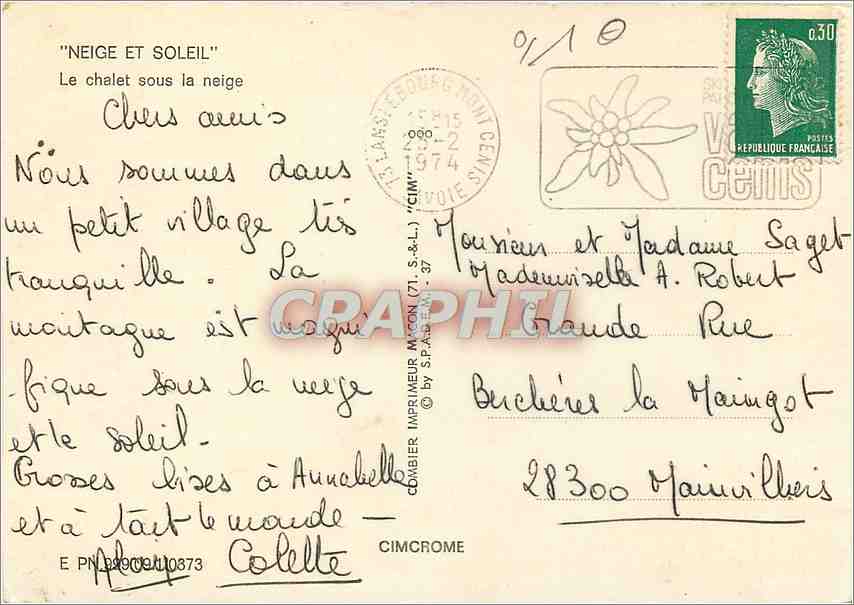 "NEIGE ET SOLEIL"
Le chalet sous la neige
Chers amis
Nous sommes dans
un petit village très
tranquille. La
montagne est magni
fique sous la neige
et le soleil.
Grosses bises à Annabelle
et à tout le monde -
Colette
E PN 999/09/110373
CIMCROME
COMBIER IMPRIMEUR MACON (71. S.-&-L.) "CIM"
© by S.P.A.D.E.M. - 37
73 LANSLEBOURG MONT CENIS
15H15
-2
1974
SAVOIE
cenis
0,30
POSTES
REPUBLIQUE FRANÇAISE
Monsieur et Madame Saget
Mademoiselle A. Robert
Grande Rue
Berchères la Maingot
28300 Mainvilliers
CRAPHIL